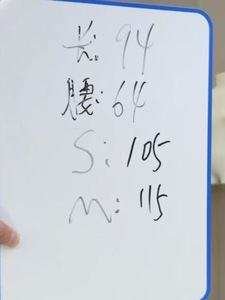 长:94
腰:64
S:105
M:115